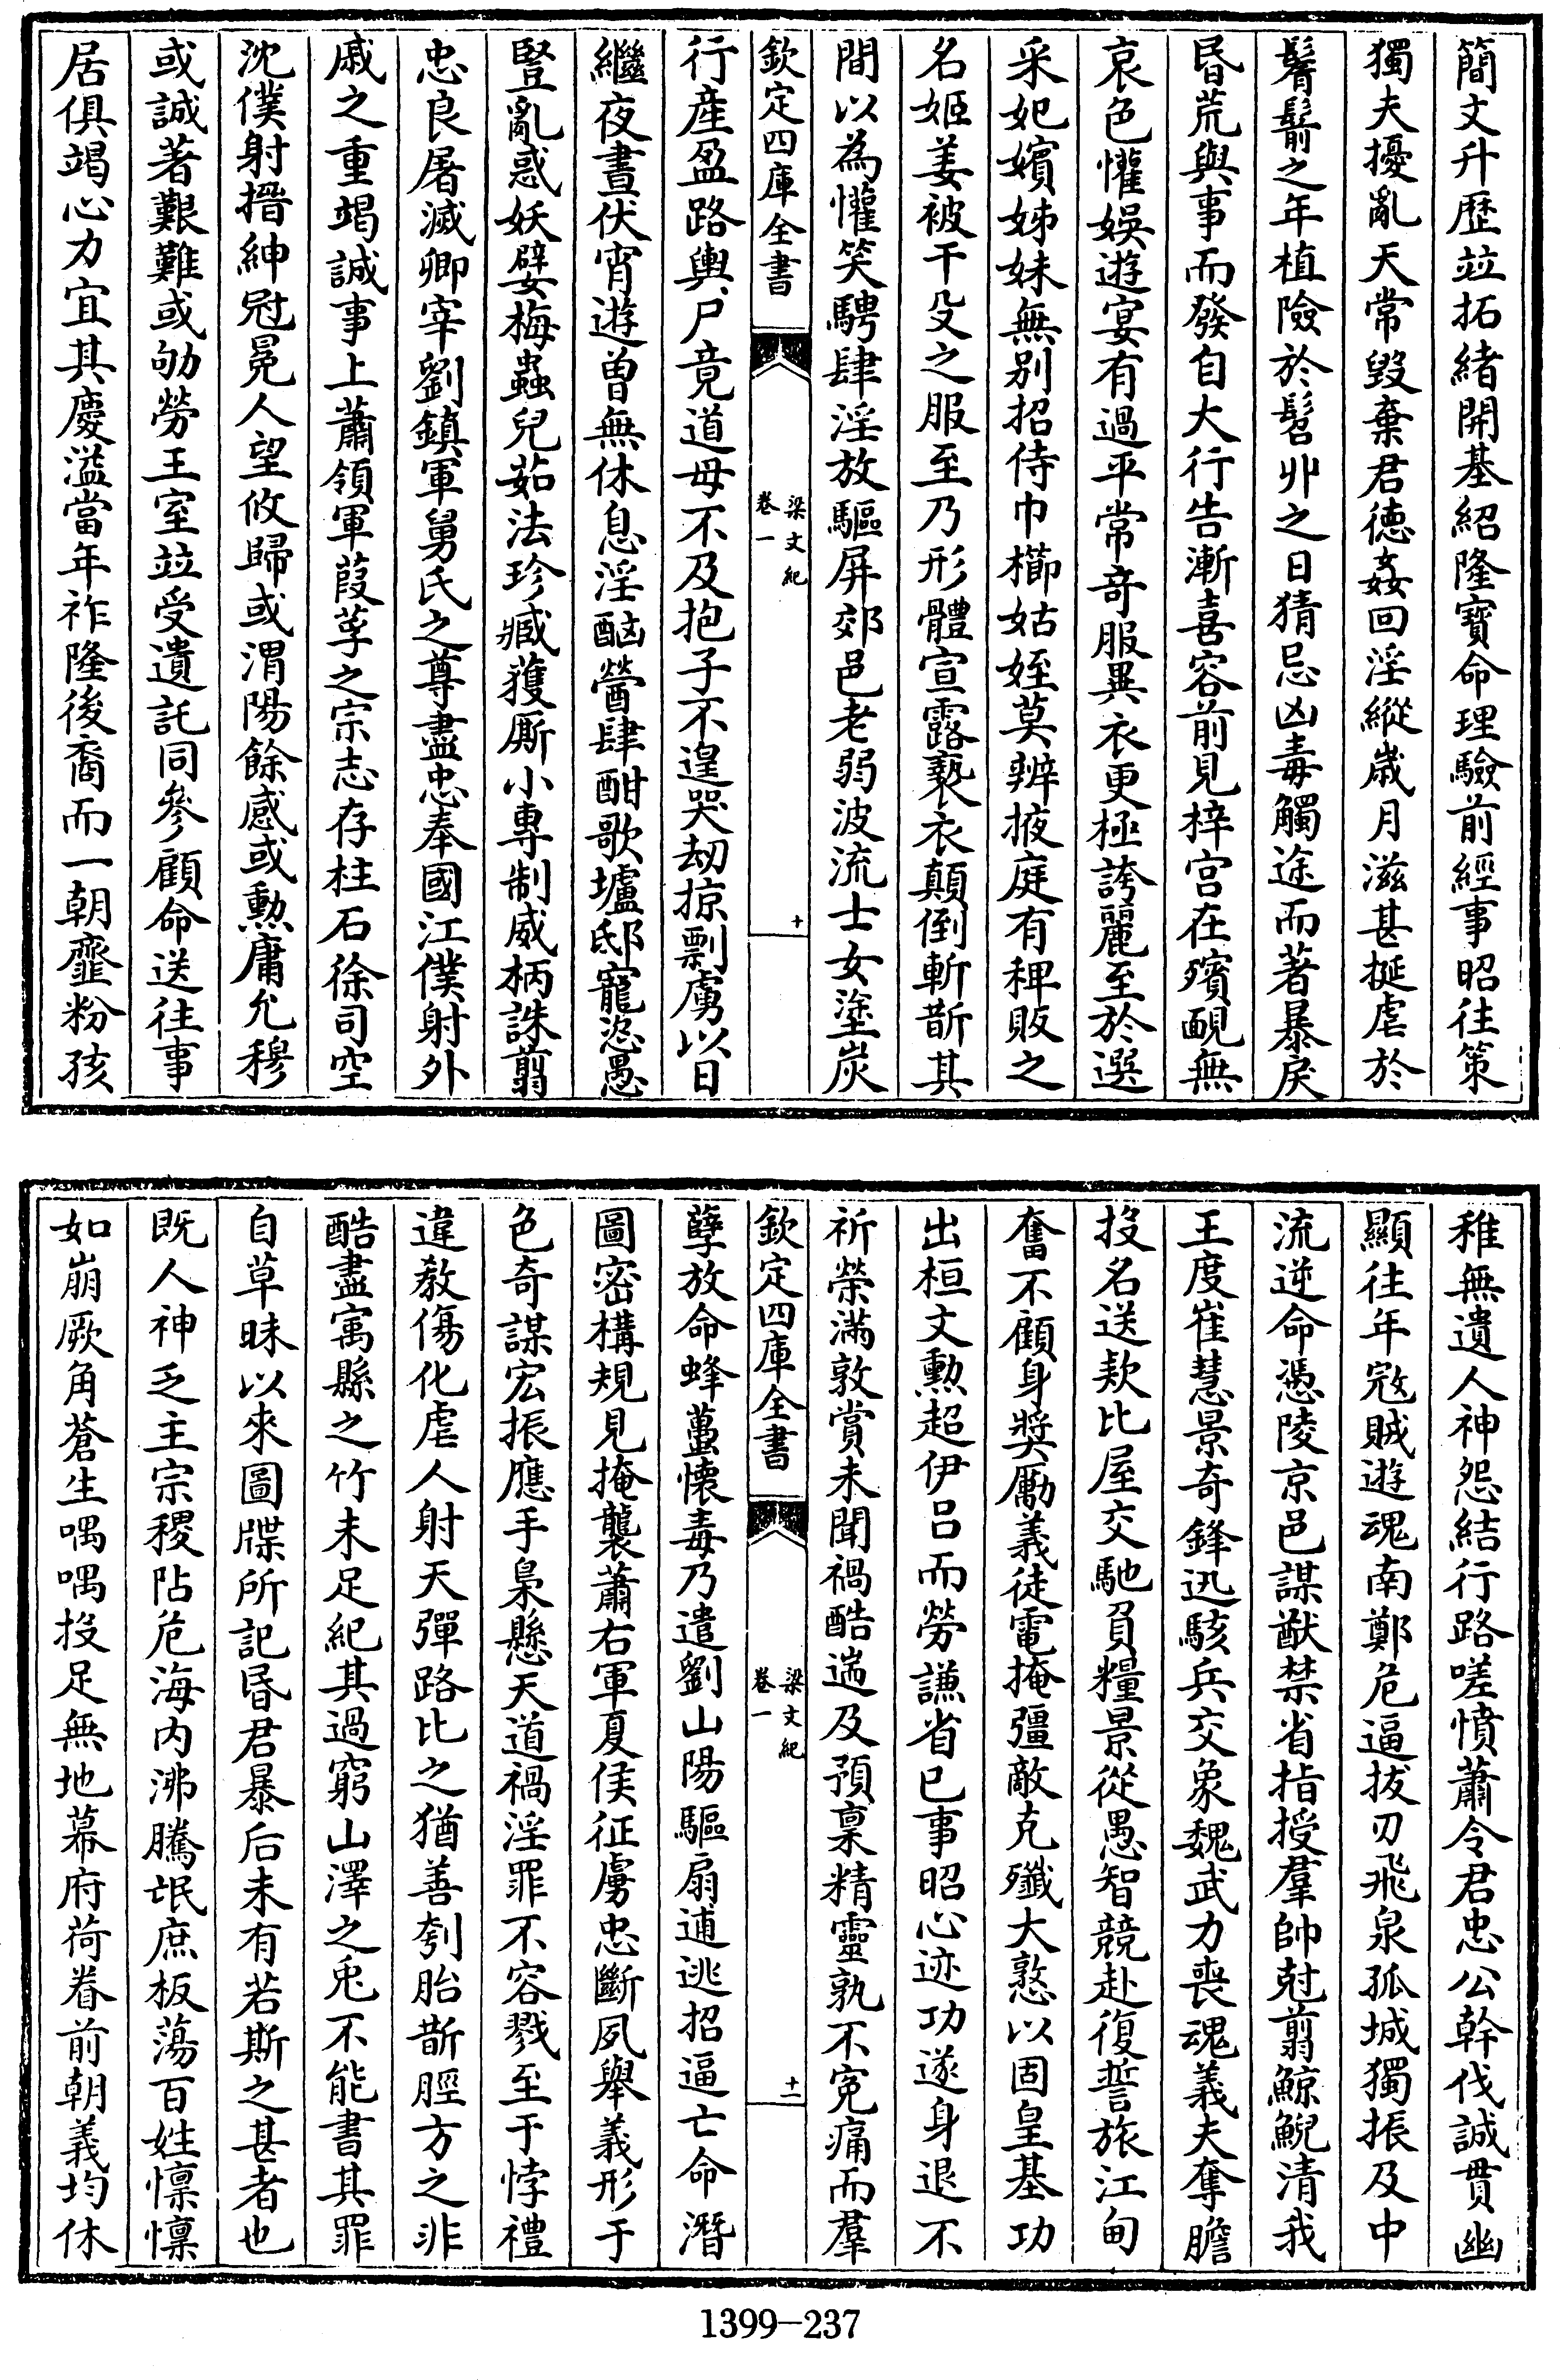 簡文升歴竝拓緒開基紹隆寶命理驗前經事昭往策
獨夫擾亂天常毀棄君德姦回淫縱歲月滋甚挻虐於
鬌鬋之年植險於髫丱之日猜忌凶毒觸途而著暴戾
昏荒與事而發自大行告漸喜容前見梓宫在殯靦無
哀色懽娛遊宴有過平常竒服異衣更極誇麗至於選
采妃嬪姊妹無别招侍巾櫛姑姪莫辨掖庭有稗販之
名姬姜被干殳之服至乃形體宣露褻衣顛倒斬斮其
間以為懽笑騁肆淫放驅屏郊邑老弱波流士女塗炭
欽定四庫全書
梁文紀
卷一
十
行産盈路輿尸竟道母不及抱子不遑哭刼掠剽虜以日
繼夜晝伏宵遊曾無休息淫酗醟肆酣歌壚邸寵恣愚
豎亂惑妖孼梅蟲兒茹法珍臧獲厮小專制威柄誅翦
忠良屠滅卿宰劉鎮軍舅氏之尊盡忠奉國江僕射外
戚之重竭誠事上蕭領軍葭莩之宗志存柱石徐司空
沈僕射搢紳冠冕人望攸歸或渭陽餘感或勲庸允穆
或誠著艱難或劬勞王室竝受遺託同參顧命送往事
居俱竭心力宜其慶溢當年祚隆後裔而一朝虀粉孩
稚無遺人神怨結行路嗟憤蕭令君忠公幹伐誠貫幽
顯往年寇賊遊魂南鄭危逼拔刃飛泉孤城獨振及中
流逆命憑陵京邑謀猷禁省指授羣帥尅翦鯨鯢清我
王度崔慧景奇鋒迅駭兵交象魏武力喪魂義夫奪膽
投名送欵比屋交馳負糧景從愚智競赴復誓旅江甸
奮不顧身奬勵義徒電掩彊敵克殲大憝以固皇基功
出桓文勲超伊吕而勞謙省己事昭心迹功遂身退不
祈榮滿敦賞未聞禍酷遄及預禀精靈孰不寃痛而羣
欽定四庫全書
梁文紀
卷一
十一
孽放命蜂蠆懷毒乃遣劉山陽驅扇逋逃招逼亡命潛
圖密構規見掩襲蕭右軍夏侯征虜忠斷夙舉義形于
色奇謀宏振應手梟懸天道禍淫罪不容戮至于悖禮
違教傷化虐人射天彈路比之猶善刳胎斮脛方之非
酷盡寓縣之竹未足紀其過窮山澤之兎不能書其罪
自草昧以來圖牒所記昏君暴后未有若斯之甚者也
既人神乏主宗稷阽危海内沸騰氓庶板蕩百姓懍懍
如崩厥角蒼生喁喁投足無地幕府荷眷前朝義均休
1399-237